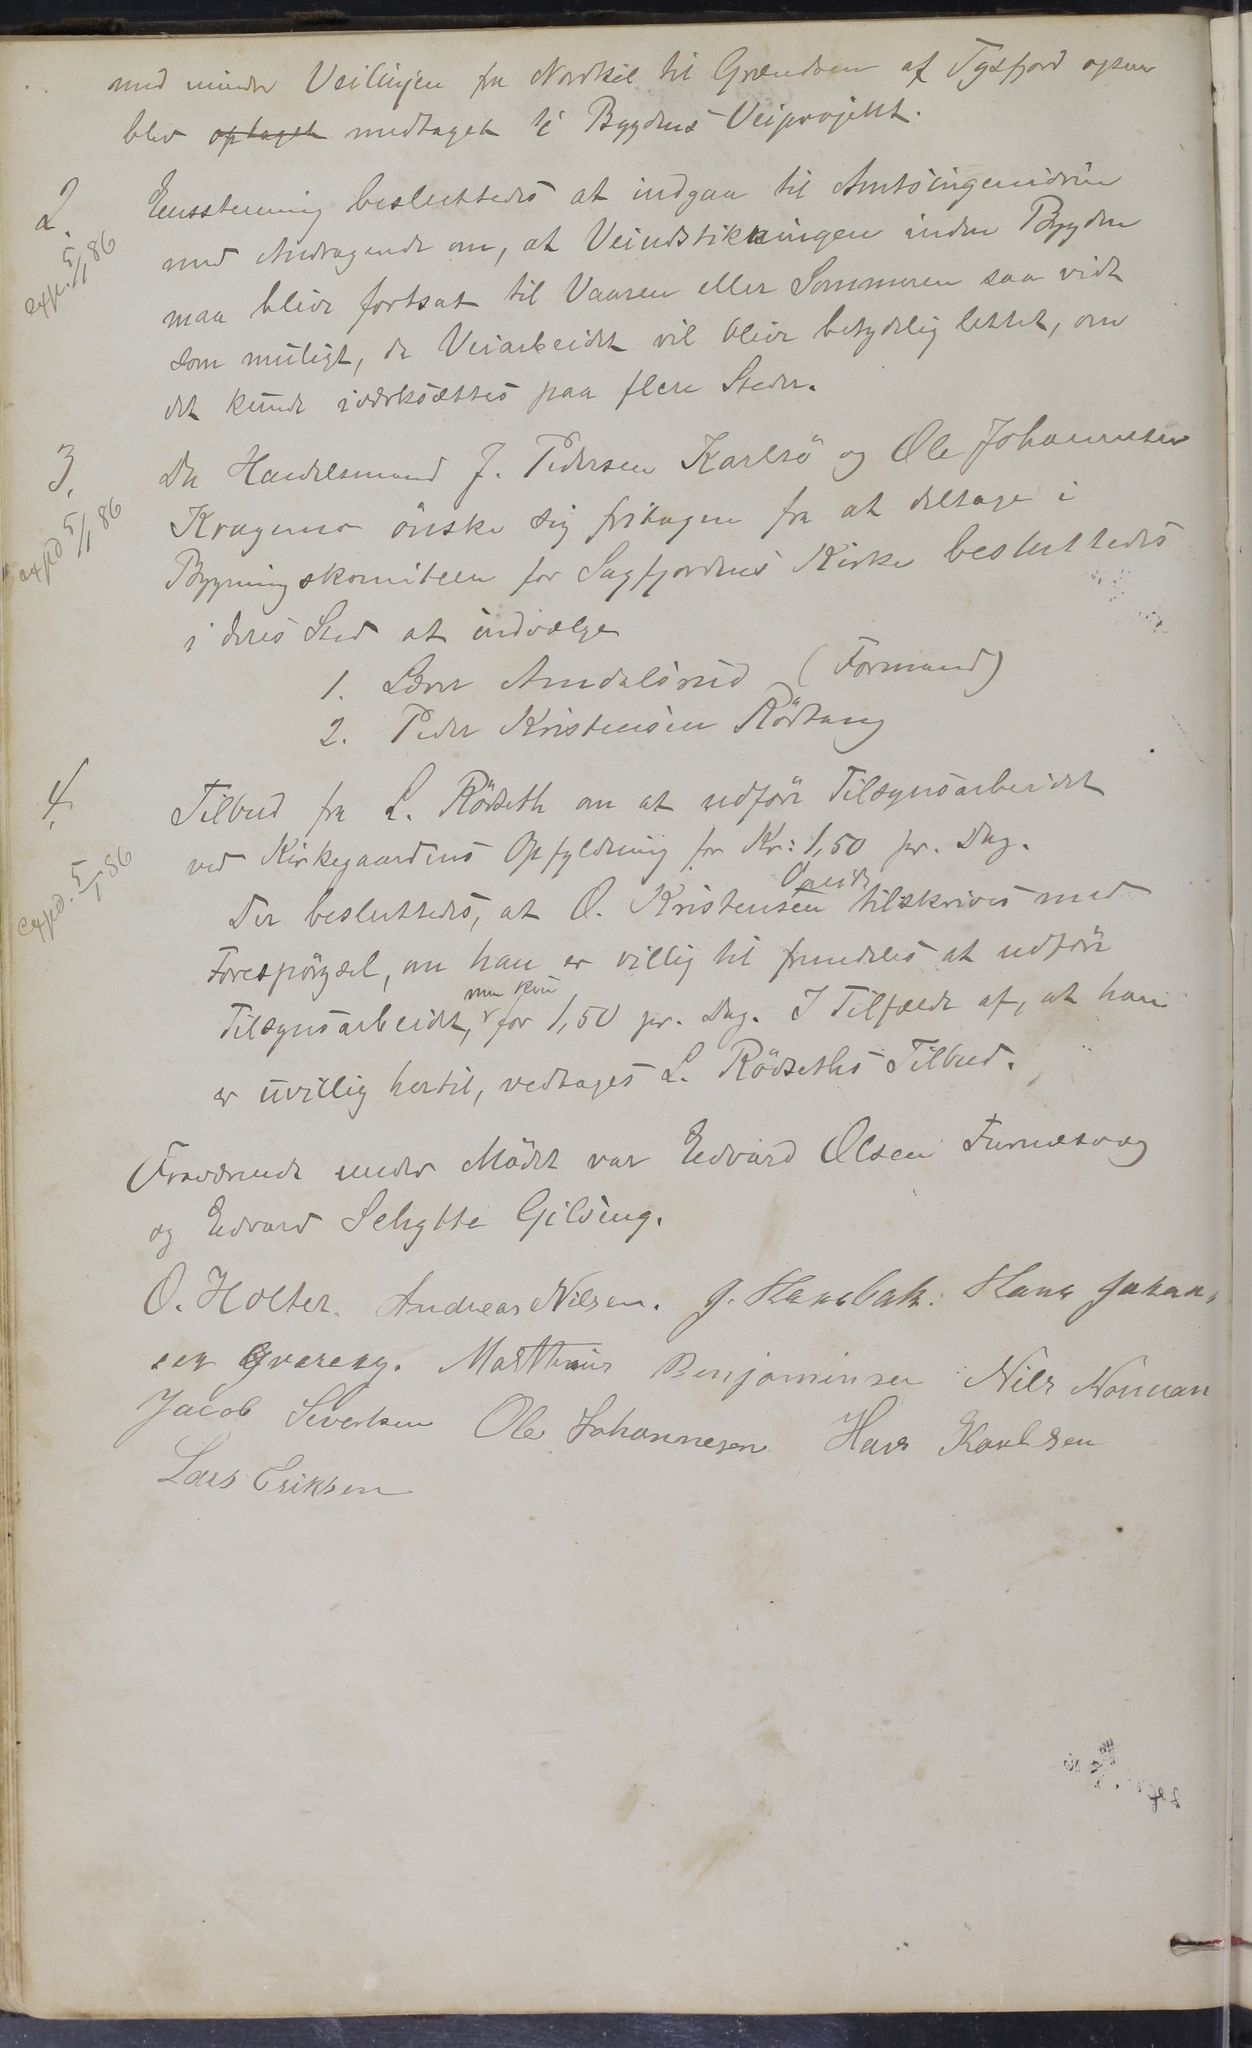 med mindre Veilinjen fra Nordkil til Grændsen af Tysfjord ogsaa
blev optaget medtaget i Bygdens Veiprojekt.
2. Enstemmig besluttedes at indgaa til Amtsingeniören
exp. 5/1 86
med Andragende om, at Veiudstikningen inden Bygden
maa blive fortsat til Vaaren eller Sommeren saa vidt
som muligt, da Veiarbeidet vil blive betydelig lettet, om
det kunde iværksættes paa flere Steder.
3. Da Handelsmand J. Pedersen Karlsö og Ole Johannesen
expd 5/1 86
Kragemo önske sig fritagen fra at deltage i
Bygningskomiteen for Sagfjordens Kirke besluttedes
i deres Sted at indvælge
1. Lærer Amdalsrud (Formand)
2. Peder Kristensen Rödtang
4. Tilbud fra L. Rödseth om at udföre Tilsynsarbeidet
expd. 5/1 86
ved Kirkegaardens Opfyldning for Kr: 1,50 pr. Dag.
Opeide
Der besluttedes, at O. Kristensen tilskrives med
Forespörgsel, om han er villig til fremdeles at udföre
men kun
Tilsynsarbeidet, for 1,50 pr. Dag. I Tilfælde af, at han
er uvillig hertil, vedtages L. Rödseths Tilbud.
Fraværende under Mödet var Edvard Olsen Furnesvag
og Edvard Schytte Gilsing.
O. Holter. Andreas Nilsen. J. Hansbak. Hans Johan-
sen Marthinus Benjaminsen Nils Norman
Jacob Sivertsen Ole Johannesen Hans Karlsen
Lars Eriksen